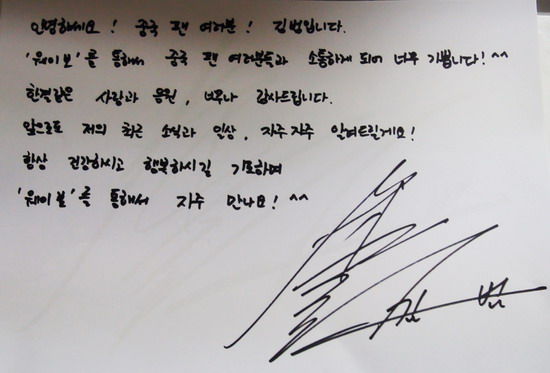 안녕하세요! 중국 팬 여러분! 김범입니다.
'웨이보'를 통해서 중국 팬 여러분들과 소통하게 되어 너무 기쁩니다! ^^
한결같은 사랑과 응원, 너무나 감사드립니다.
앞으로도 저의 최근 소식과 일상, 자주자주 알려드릴게요!
항상 건강하시고 행복하시길 기도하며
'웨이보'를 통해서 자주 만나요! ^^
김범